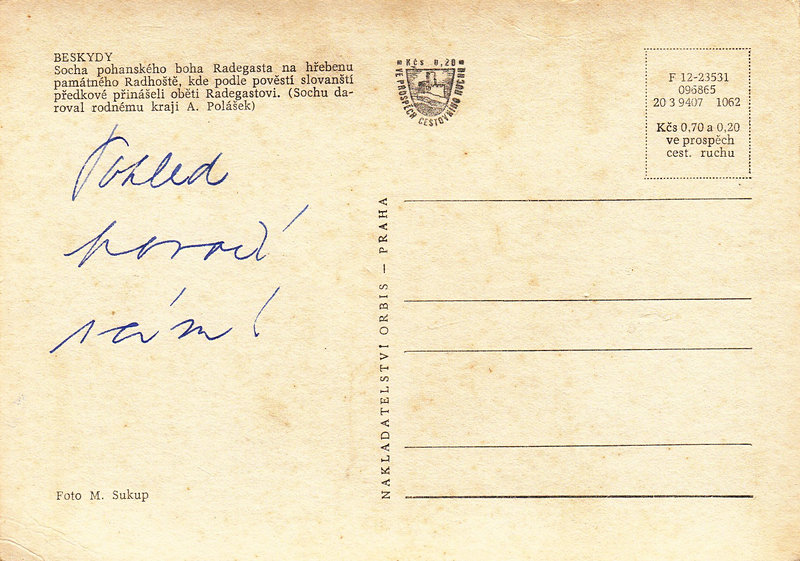 BESKYDY
Socha pohanského boha Radegasta na hřebenu
památného Radhoště, kde podle pověstí slovanští
předkové přinášeli oběti Radegastovi. (Sochu da-
roval rodnému kraji A. Polášek)
Pohled
hovoří
sám!
Foto M. Sukup
NAKLADATELSTVÍ ORBIS — PRAHA
Kčs 0,20
VE PROSPĚCH CESTOVNÍHO RUCHU
F 12-23531
096865
20 3 9407 1062
Kčs 0,70 a 0,20
ve prospěch
cest. ruchu